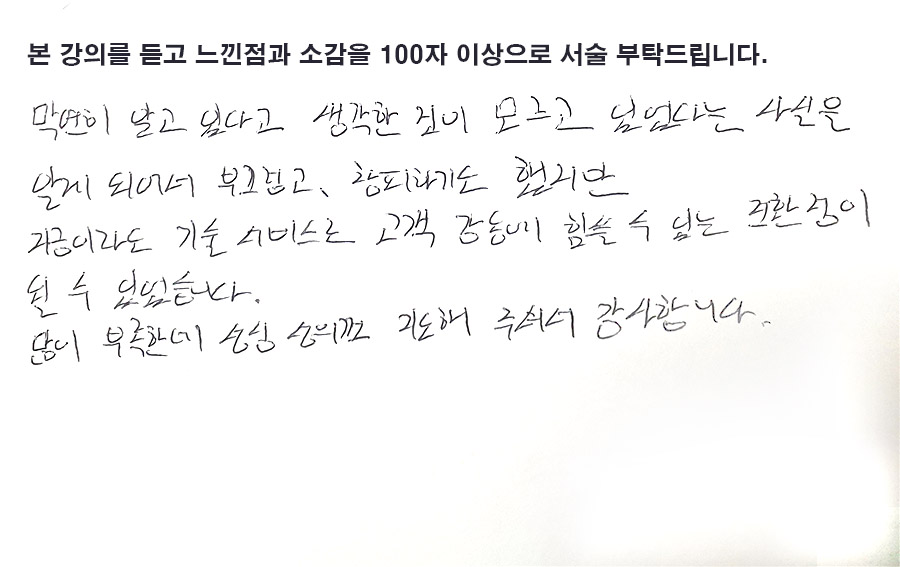 본 강의를 듣고 느낀점과 소감을 100자 이상으로 서술 부탁드립니다.
막연히 알고 있다고 생각한 것이 모르고 있었다는 사실을
알게 되어서 부끄럽고, 창피하기도 했지만
지금이라도 기술 서비스로 고객 감동에 힘쓸 수 있는 전환점이
될 수 있었습니다.
많이 부족한데 성심 성의껏 지도해 주셔서 감사합니다.